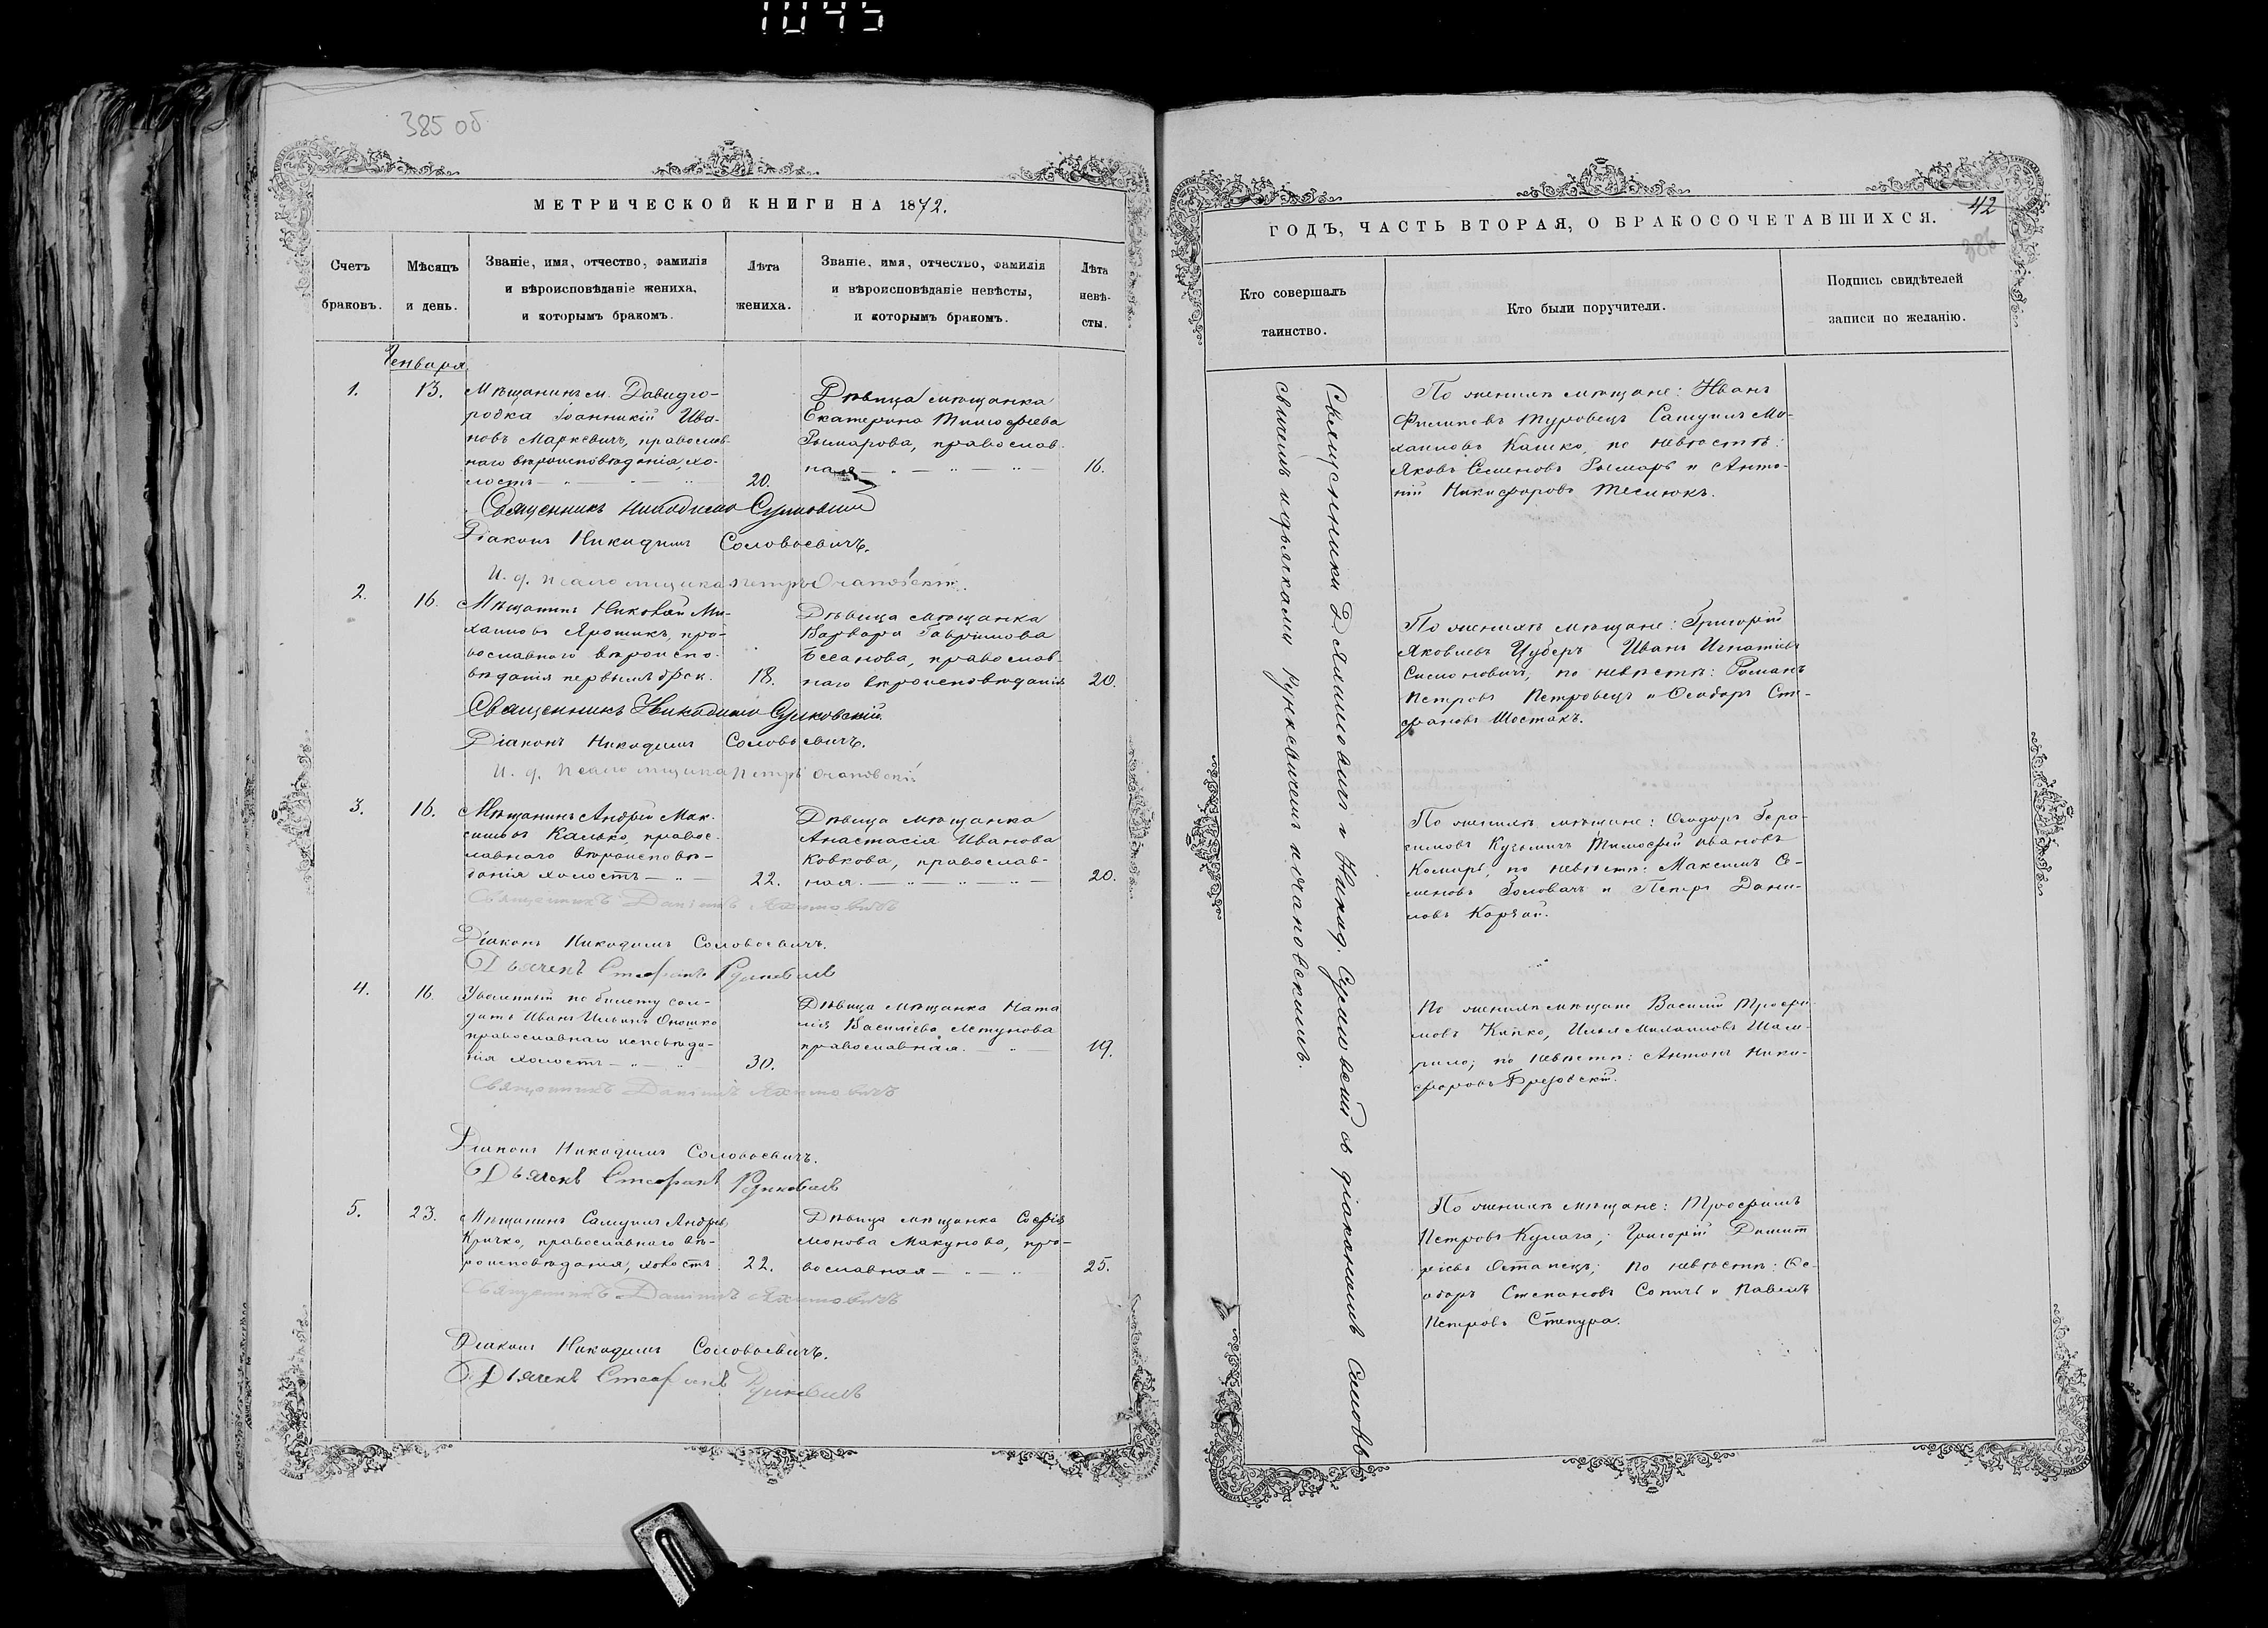 1045
385 об
МЕТРИЧЕСКОЙ КНИГИ НА 1872.
Счетъ браковъ.
Мѣсяцъ и день.
Званіе, имя, отчество, фамилія
и вѣроисповѣданіе жениха,
и которымъ бракомъ.
Лѣта жениха.
Званіе, имя, отчество, фамилія
и вѣроисповѣданіе невѣсты,
и которымъ бракомъ.
Лѣта невѣ-сты.
Января
1.
13.
Мѣщанинъ м. Давидго-
родка Іоанникій Ива-
новъ Маркевичъ, православ-
наго вѣроисповѣданія, хо-
лостъ
20.
Дѣвица мѣщанка
Екатерина Тимофеева
Рымарова, православ-
ная
16.
Священникъ Никодимъ
Діаконъ Никодимъ Соловьевичъ.
И. д. псаломщика Петръ
2.
16.
Мѣщанинъ Николай Ми-
хаиловъ Ярошикъ, пра-
вославнаго вѣроиспо-
вѣданія первымъ брак.
18.
Дѣвица мѣщанка
Варвара Гавриилова
православ-
наго вѣроисповѣданія
20.
Священникъ Никодимъ
Діаконъ Никодимъ Соловьевичъ.
И. д. псаломщика Петръ
3.
16.
Мѣщанинъ Андрей Мак-
симовъ Калько, правос-
лавнаго вѣроисповѣ-
данія холостъ
22.
Дѣвица мѣщанка
Анастасія Иванова
Ковкова, православ-
ная.
20.
Священникъ Даніилъ
Діаконъ Никодимъ Соловьевичъ.
Дьячекъ Стефанъ
4.
16.
Уволенный по билету сол-
датъ Иванъ Ильинъ Оношко
православнаго исповѣда-
нія холостъ
30.
Дѣвица мѣщанка Ната
лія Василіева Летунова
православная.
19.
Священникъ Даніилъ
Діаконъ Никодимъ Соловьевичъ.
Дьячекъ Стефанъ
5.
23.
Мѣщанинъ Самуилъ Андреев
Кричко, православнаго вѣ-
роисповѣданія, холостъ.
22.
Дѣвица мѣщанка Софія
Макунова, пра-
вославная
25.
Священникъ Даніилъ
Діаконъ Никодимъ Соловьевичъ.
Дьячекъ Стефанъ
42
386
ГОДЪ, ЧАСТЬ ВТОРАЯ, О БРАКОСОЧЕТАВШИХСЯ.
Кто совершалъ таинство.
Кто были поручители.
Подпись свидѣтелей
записи по желанію.
Священники и Никод. съ діакономъ Соловье-
вичемъ и дьячками и
По женихѣ мѣщане: Иванъ
Филиповъ Туровецъ Самуилъ Ми-
хаиловъ Кашко, по невѣстѣ:
Яковъ Семеновъ Рымаръ и Анто-
ній Никифоровъ Теслюкъ.
По женихѣ мѣщане: Григорій
Яковлевъ Цуберъ Иванъ Игнатіевъ
Симоновичъ, по невѣстѣ: Романъ
Петровъ Петровецъ и Ѳеодоръ Сте-
фановъ Шостакъ.
По женихѣ мѣщане: Ѳеодоръ Гера-
симовъ Кузьмичъ Тимофей Ивановъ
Комаръ, по невѣстѣ: Максимъ Се-
меновъ Головачъ и Петръ Дани-
ловъ Коржай.
По женихѣ мѣщане Василій Трофи-
мовъ Кипко, Илья Михаиловъ
по невѣстѣ: Антонъ Ники-
форовъ
По женихѣ мѣщане: Трофимъ
Петровъ Кулага, Григорій Димит
ріевъ Остапецъ; по невѣстѣ: Ѳе-
одоръ Степановъ Сопичъ и Павелъ
Петровъ Степура.